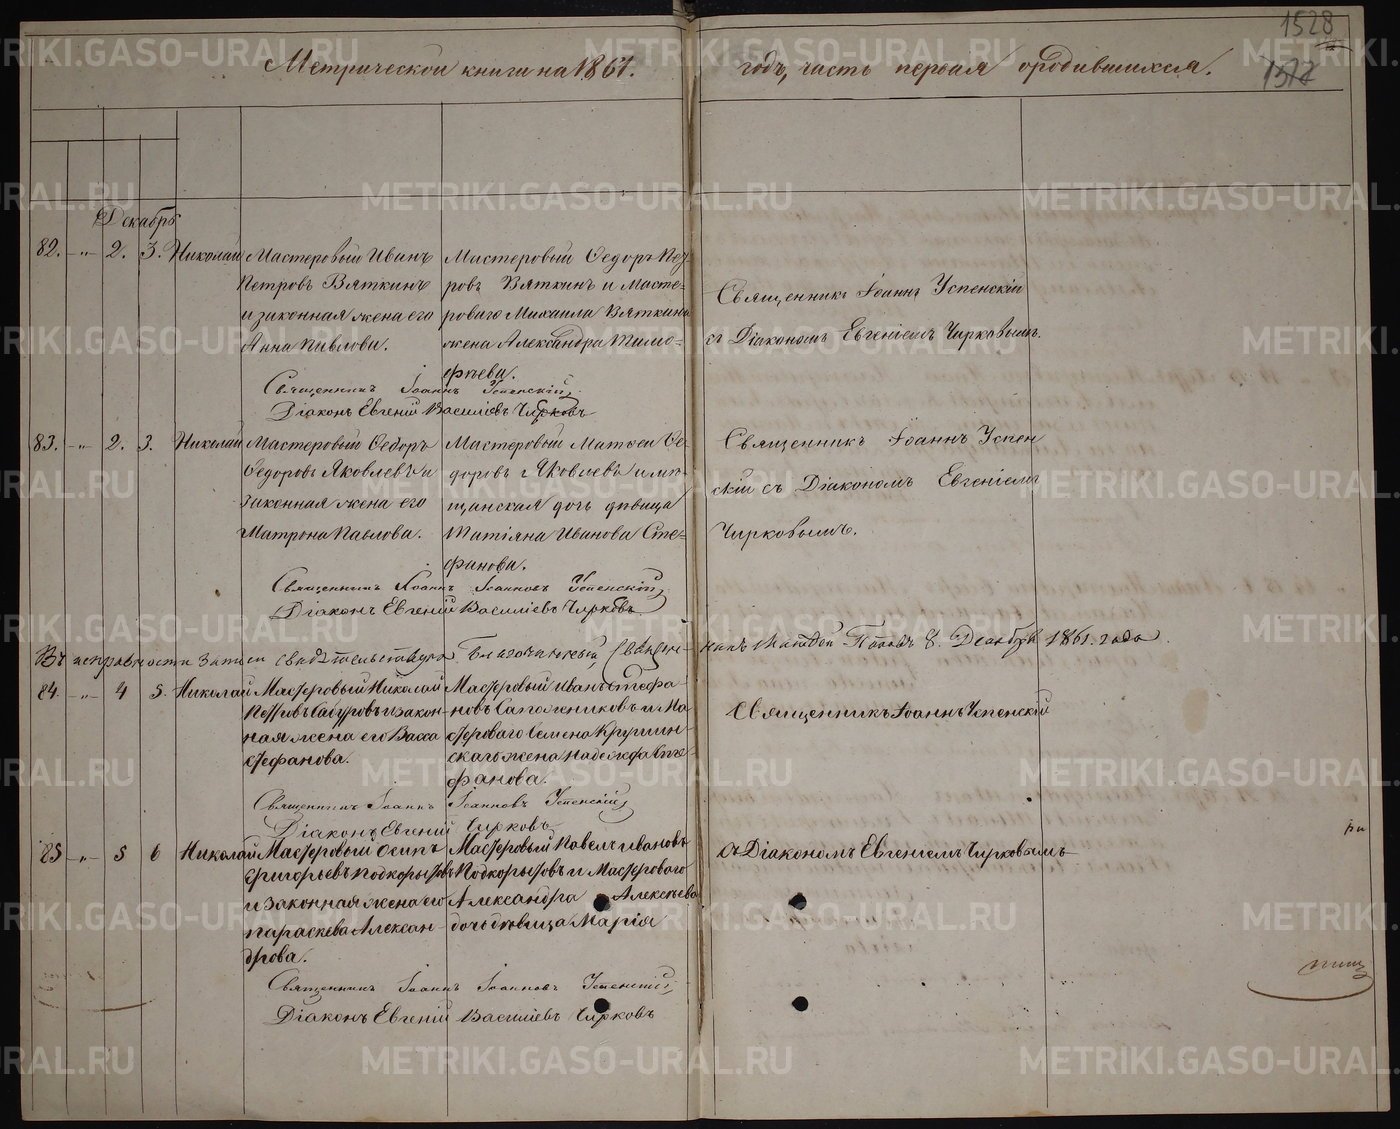 1528
1572
Метрической книги на 1861. годъ, часть первая о родившихся.
Декабрь
82. -"- 2. 3. Николай
Мастеровый Иванъ
Петровъ Вяткинъ
и законная жена его
Анна Павлова.
Мастеровый Ѳедоръ Пет
ровъ Вяткинъ и масте-
роваго Михаила Вяткина
жена Александра Тимо-
фѣева.
Священникъ Іоаннъ Успенскій
съ Діакономъ Евгеніемъ Чирковымъ.
Священникъ Іоаннъ Успенскій
Діаконъ Евгеній Василіевъ Чирковъ
83. -"- 2. 3. Николай
Мастеровый Ѳедоръ
Ѳедоровъ Яковлевъ и
законная жена его
Матрона Павлова.
Мастеровый Матѳеи Ѳе-
доровъ Яковлевъ и мѣ-
щанская дочь дѣвица
Татіяна Иванова Сте-
фанова.
Священникъ Іоаннъ Успен
скій съ Діакономъ Евгеніемъ
Чирковымъ.
Священникъ Іоаннъ Іоанновъ Успенскій
Діаконъ Евгеній Василіевъ Чирковъ
Въ исправности записи свидѣтельствую Благочинный Священ-никъ Матѳей Поповъ 8. Декабря 1861. года.
84. -"- 4 5. Николай
Мастеровый Николай
и закон-
ная жена его Васса
Стефанова.
Мастеровый Иванъ Стефа-
новъ Сапожниковъ и Ма
стероваго Семена
жена Надежда Сте-
фанова.
Священникъ Іоаннъ Успенскій
Священникъ Іоаннъ Іоанновъ Успенскій
Діаконъ Евгеній Чирковъ
85 -"- 5 6 Николай
Мастеровый Осипъ
Григорьевъ Подкорытовъ
и законная жена его
Параскева Алексан-
дрова.
Мастеровый Павелъ Ивановъ
Подкорытовъ и Мастероваго
Александра Алексѣева
дочь дѣвица Марія
съ Діакономъ Евгеніемъ Чирковымъ
Священникъ Іоаннъ Іоанновъ Успенскій
Діаконъ Евгеній Василіевъ Чирковъ
METRIKI.GASO-URAL.RU